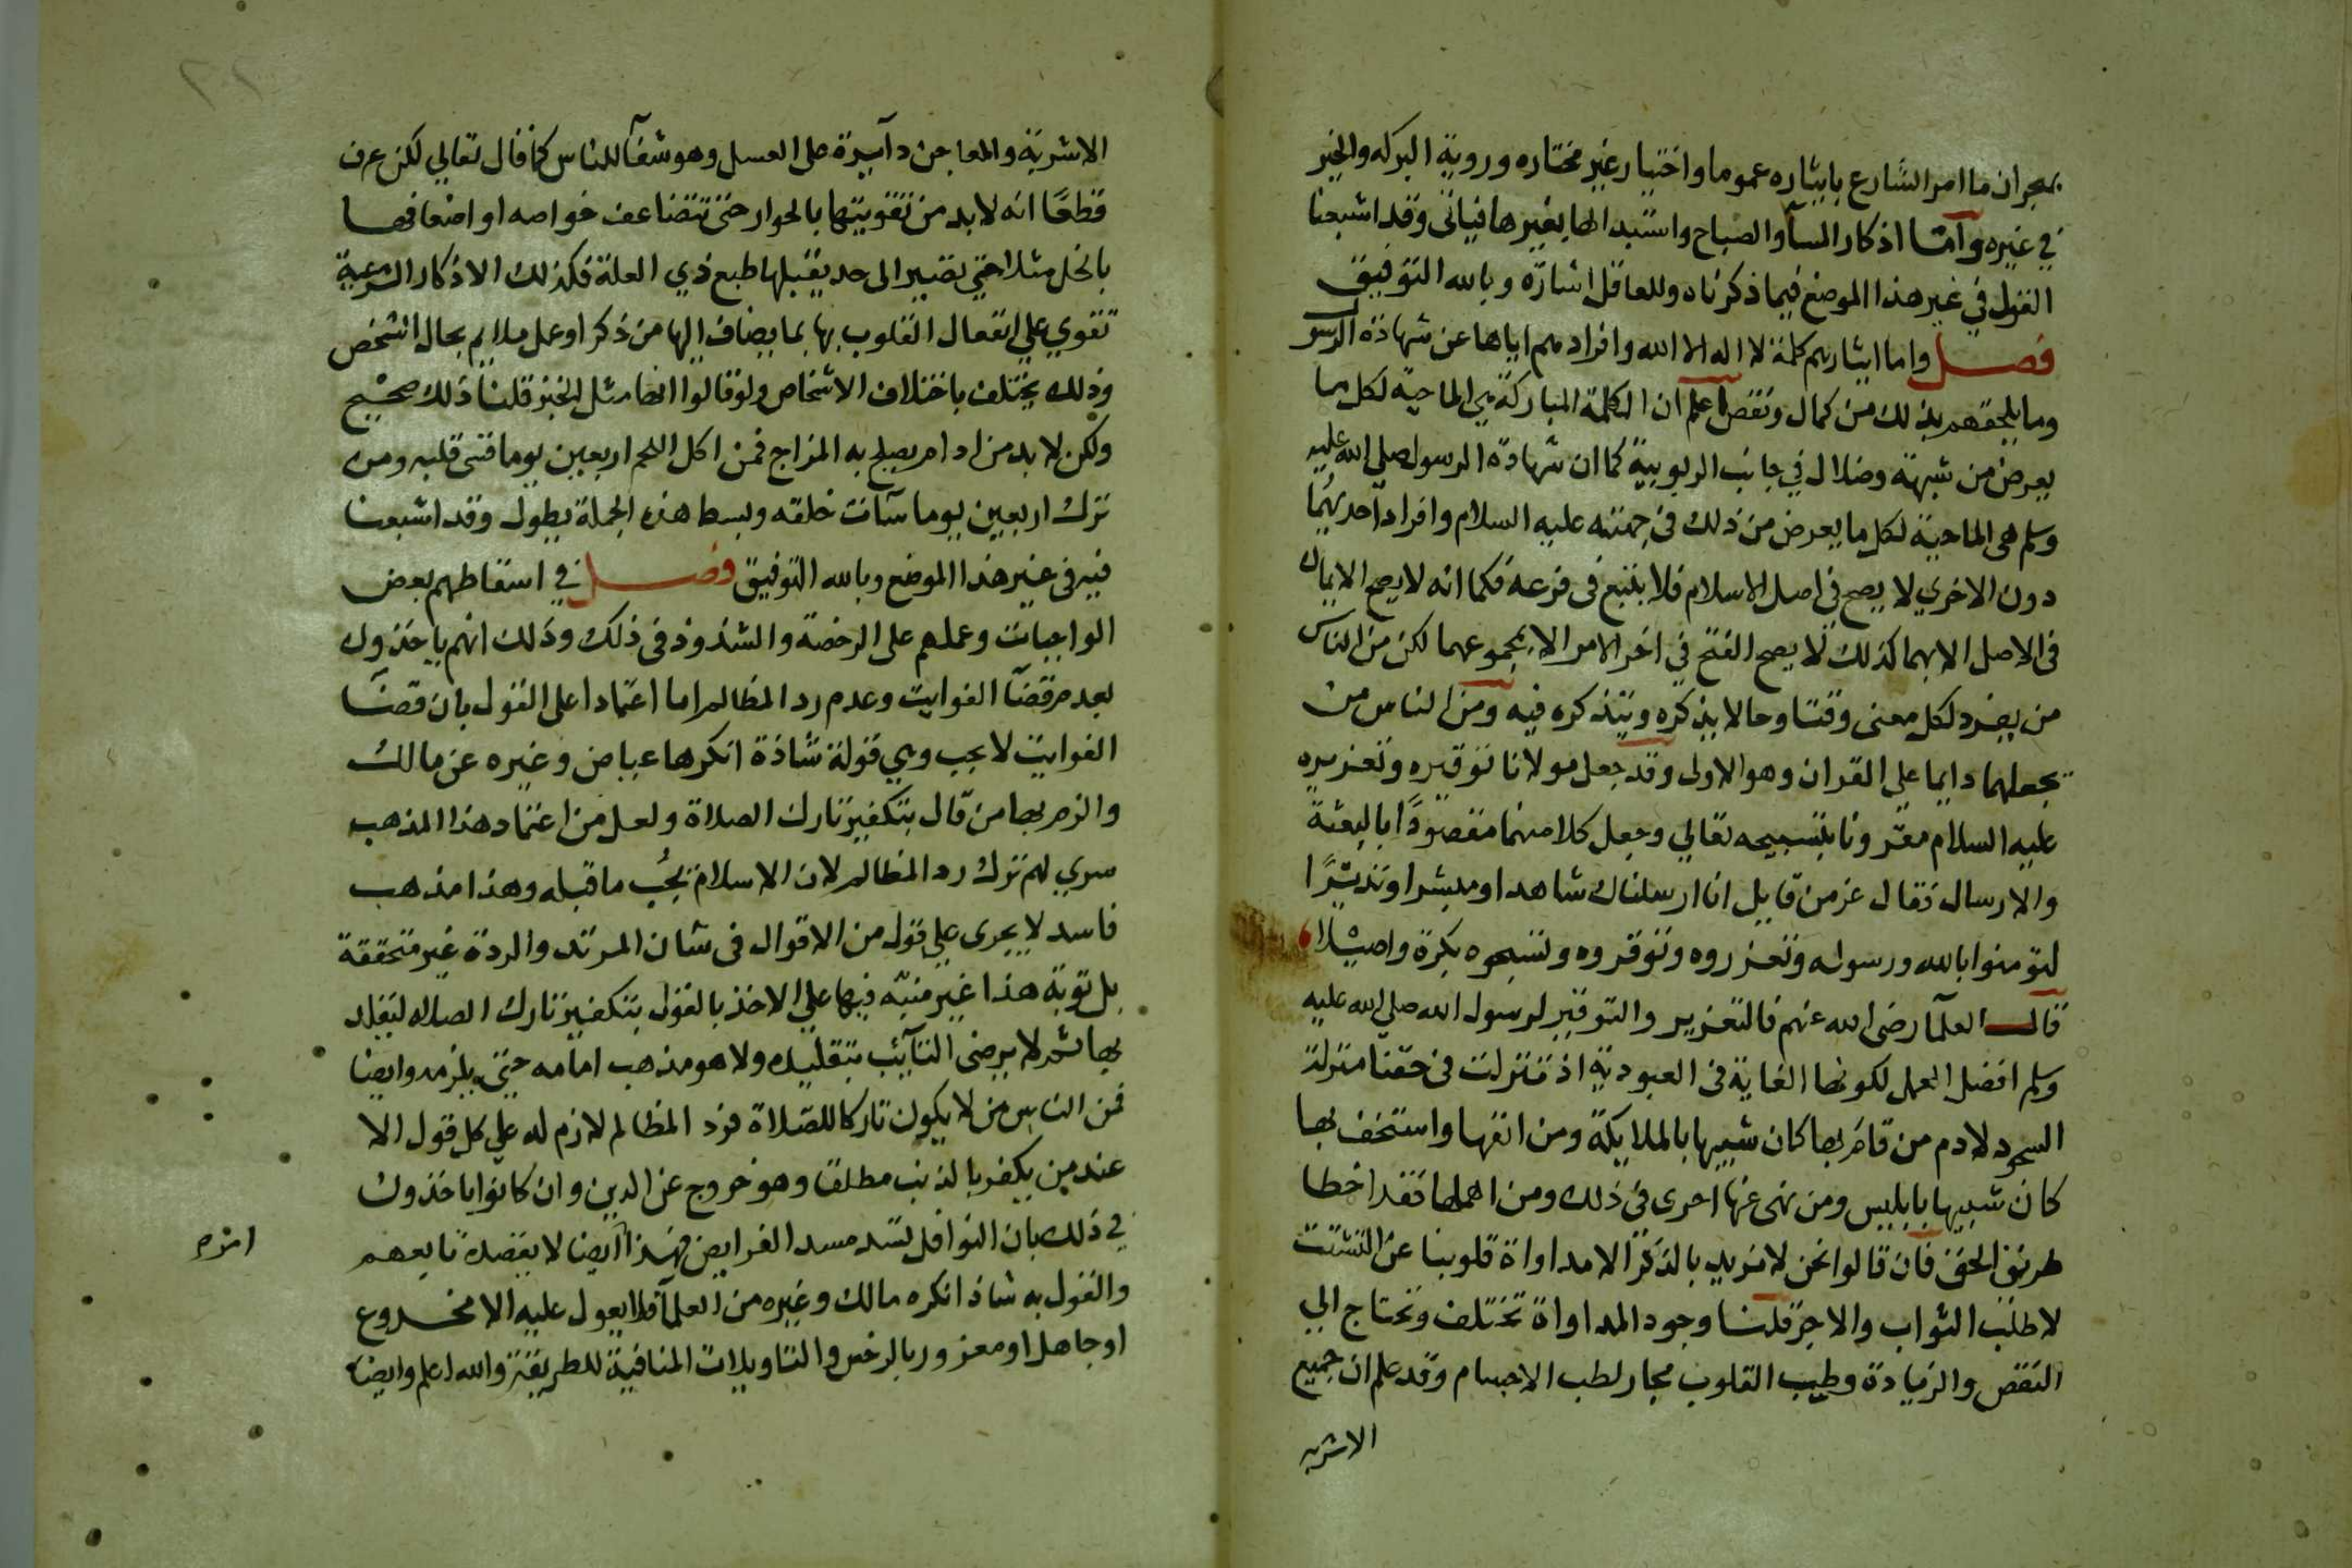 بهجران ما امر الشارع بايثاره عموما واختيار غير مختاره وروية البركه والخير
في غيره وأما اذكار المسآ والصباح واستبدالها بغيرها فياتى وقد اشبعنا
القول في غير هذا الموضع فيما ذكرناه وللعاقل اشارة وبالله التوفيق
فصل واما ايثارهم كلمة لا اله الا الله وافرادهم اياها عن شهادة الرسو
وما يلحقهم بذلك من كمال ونقص اعلم ان الكلمة المباركة هي الماحية لكل ما
يعرض من شبهة وضلال في جانب الربوبية كما ان شهادة الرسول صلي الله عليه
وسلم هى الماحية لكل ما يعرض من ذلك في جهته عليه السلام وافراد احديهما
دون الاخري لا يصح في اصل الاسلام فلا يتبع فى فرعه فكما انه لا يصح الايمان
فى الاصل الا بهما كذلك لا يصح الفتح في اخر الامر الا بمجموعهما لكن من الناس
من يفرد لكل معنى وقتا وحالا يذكره ويتذكره فيه ومن الناس من
يجعلهما دايما علي القران وهو الاولى وقد جعل مولانا توقيره وتعزيره
عليه السلام مقرونا بتسبيحه تعالي وجعل كلا منهما مقصودًا بالبعثة
والارسال فقال عز من قايل انا ارسلناك شاهدا ومبشرا ونذيرًا
لتومنوا بالله ورسوله وتعزروه وتوقروه وتسبحوه بكرة واصيلا
قال العلمآ رضى الله عنهم فالتعزير والتوقير لرسول الله صلي الله عليه
وسلم افضل العمل لكونها الغاية فى العبودية اذ تنزلت فى حقنا منزلة
السجود لادم من قام بها كان شبيها بالملايكة ومن انفها واستخف بها
كان شبيها بابليس ومن نهى عنها احرى في ذلك ومن اهملها فقد اخطا
طريق الحق فان قالوا نحن لا نريد بالذكر الا مداواة قلوبنا عن التشتت
لا طلب الثواب والاجر قلنا وجود المداواة تختلف وتحتاج الي
النقص والزيادة وطب القلوب مجار لطب الاجسام وقد علم ان جميع
الاشربه
الاشربة والمعاجن دآيرة على العسل وهو شفآ للناس كما قال تعالي لكن عرف
قطعًا انه لا بد من تقويتها بالحوار حتى تتضاعف خواصه او اضعافها
بالخل مثلا حتي تصير الى حد يقبلها طبع ذي العلة فكذلك الاذكار الشرعية
تقوي علي انفعال القلوب بها بما يضاف اليها من ذكر او عمل ملايم بحال الشخص
وذلك يختلف باختلاف الاشخاص ولو قالوا انها مثل الخبز قلنا ذلك صحيح
ولكن لا بد من ادام يصلح به المزاج فمن اكل اللحم اربعين يوما قسى قلبه ومن
ترك اربعين يوما سآت خلقه وبسط هذه الجملة يطول وقد اشبعنا
فيه فى غير هذا الموضع وبالله التوفيق فصل في اسقاطهم بعض
الواجبات وعملهم على الرخصة والشذوذ فى ذلك وذلك انهم ياخذون
بعدم قضآ الفوايت وعدم رد المظالم اما اعتمادا على القول بان قضآ
الفوايت لا يجب وهي قولة شاذة انكرها عياض وغيره عن مالك
والزم بها من قال بتكفير تارك الصلاة ولعل من اعتماد هذا المذهب
سري لهم ترك رد المظالم لان الاسلام يجُب ما قبله وهذا مذهب
فاسد لا يجرى علي قول من الاقوال فى شان المرتد والردة غير متحققة
بل توبة هذا غير منبّه فيها علي الاخذ بالقول بتكفير تارك الصلاه ليقلد
بها ثم لا يرضى التآيب بتقليده ولا هو مذهب امامه حتى يلزمه وايضا
فمن الناس من لا يكون تاركا للصلاة فرد المظالم لازم له علي كل قول الا
عند من يكفر بالذنب مطلقا وهو خروج عن الدين وان كانوا ياخذون
في ذلك بان النوافل تسد مسد الفرايض فهذا ايضا لا يقصده تابعهم
والقول به شاذ انكره مالك وغيره من العلمآ فلا يعول عليه الا مخدوع
او جاهل او مغرور بالرخص والتاويلات المنافية للطريقة والله اعلم وايضا